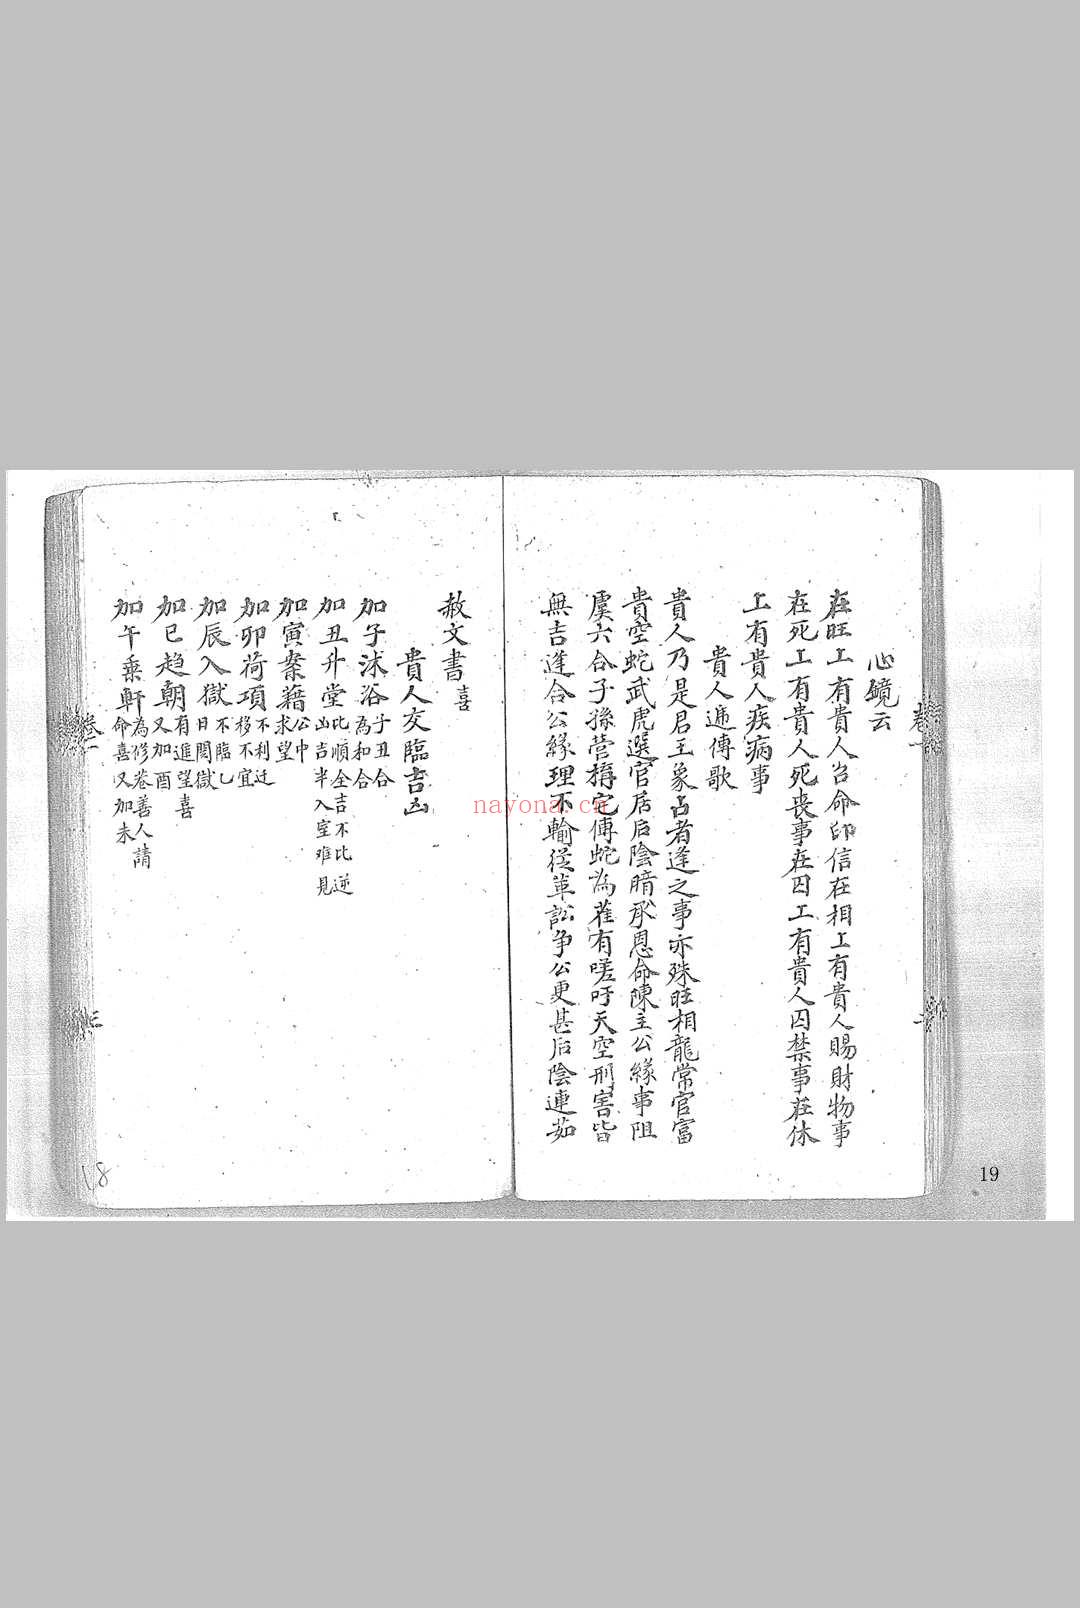 卷一
心鏡云
在旺上有貴人召命印信在相上有貴人賜財物事
在死上有貴人死喪事在囚上有貴人囚禁事在休
上有貴人疾病事
貴人遞傳歌
貴人乃是君主象占者逢之事亦殊旺相龍常官富
貴空蛇武虎選官居后陰暗承恩命陳主公緣事阻
虞六合子孫營搆它傳蛇為雀有嗟吁天空刑害皆
無吉逢合公緣理不輸從革訟争公更甚后陰連茹
二
赦文書喜
貴人交臨吉凶
加子沐浴子丑合為和合
加丑升堂比順全吉不比逆凶吉半入室难見
加寅案籍公中求望
加卯荷項不利迁移不宜
加辰入獄不臨乙日間獄
加巳趋朝有進望喜又加酉
加午乘軒為修卷善人請命喜又加未
卷一
三
18
19
nayona.cn